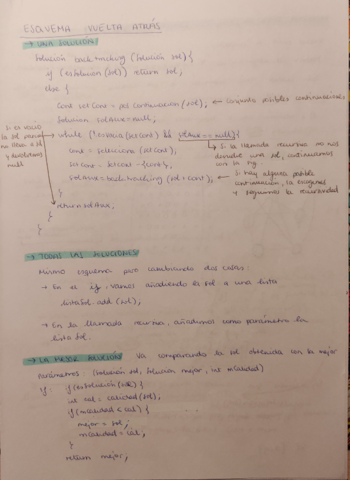 ESQUEMA VUELTA ATRÁS
→ UNA SOLUCIÓN:
Solución backtracking (Solución sol) {
if (esSolucion (sol)) return sol;
else {
Cont setCont = posContinuacion (sol); ← Conjunto posibles continuaciones
Solucion solAux = null;
Si es vacío
la sol parcial
no lleva a sol
y devolvemos
null
while (!esVacio (setCont) && solAux == null) {
cont = selecciona (setCont);
setCont = setCont - {cont};
solAux = backtracking (sol + cont);
}
return solAux;
}
}
→ Si la llamada recursiva no nos
devuelve una sol, continuamos
con la sig
← Si hay alguna posible
continuación, la escogemos
y seguimos la recursividad
→ TODAS LAS SOLUCIONES:
Mismo esquema pero cambiando dos cosas:
→ En el if, vamos añadiendo la sol a una lista
listaSol.add (sol);
→ En la llamada recursiva, añadimos como parámetro la
lista sol.
→ LA MEJOR SOLUCIÓN: Va comparando la sol obtenida con la mejor
parámetros: (Solución sol, Solucion mejor, int mCalidad)
if: if (esSolución (sol)) {
int cal = calidad (sol);
if (mCalidad < cal) {
mejor = sol;
mCalidad = cal;
}
return mejor;